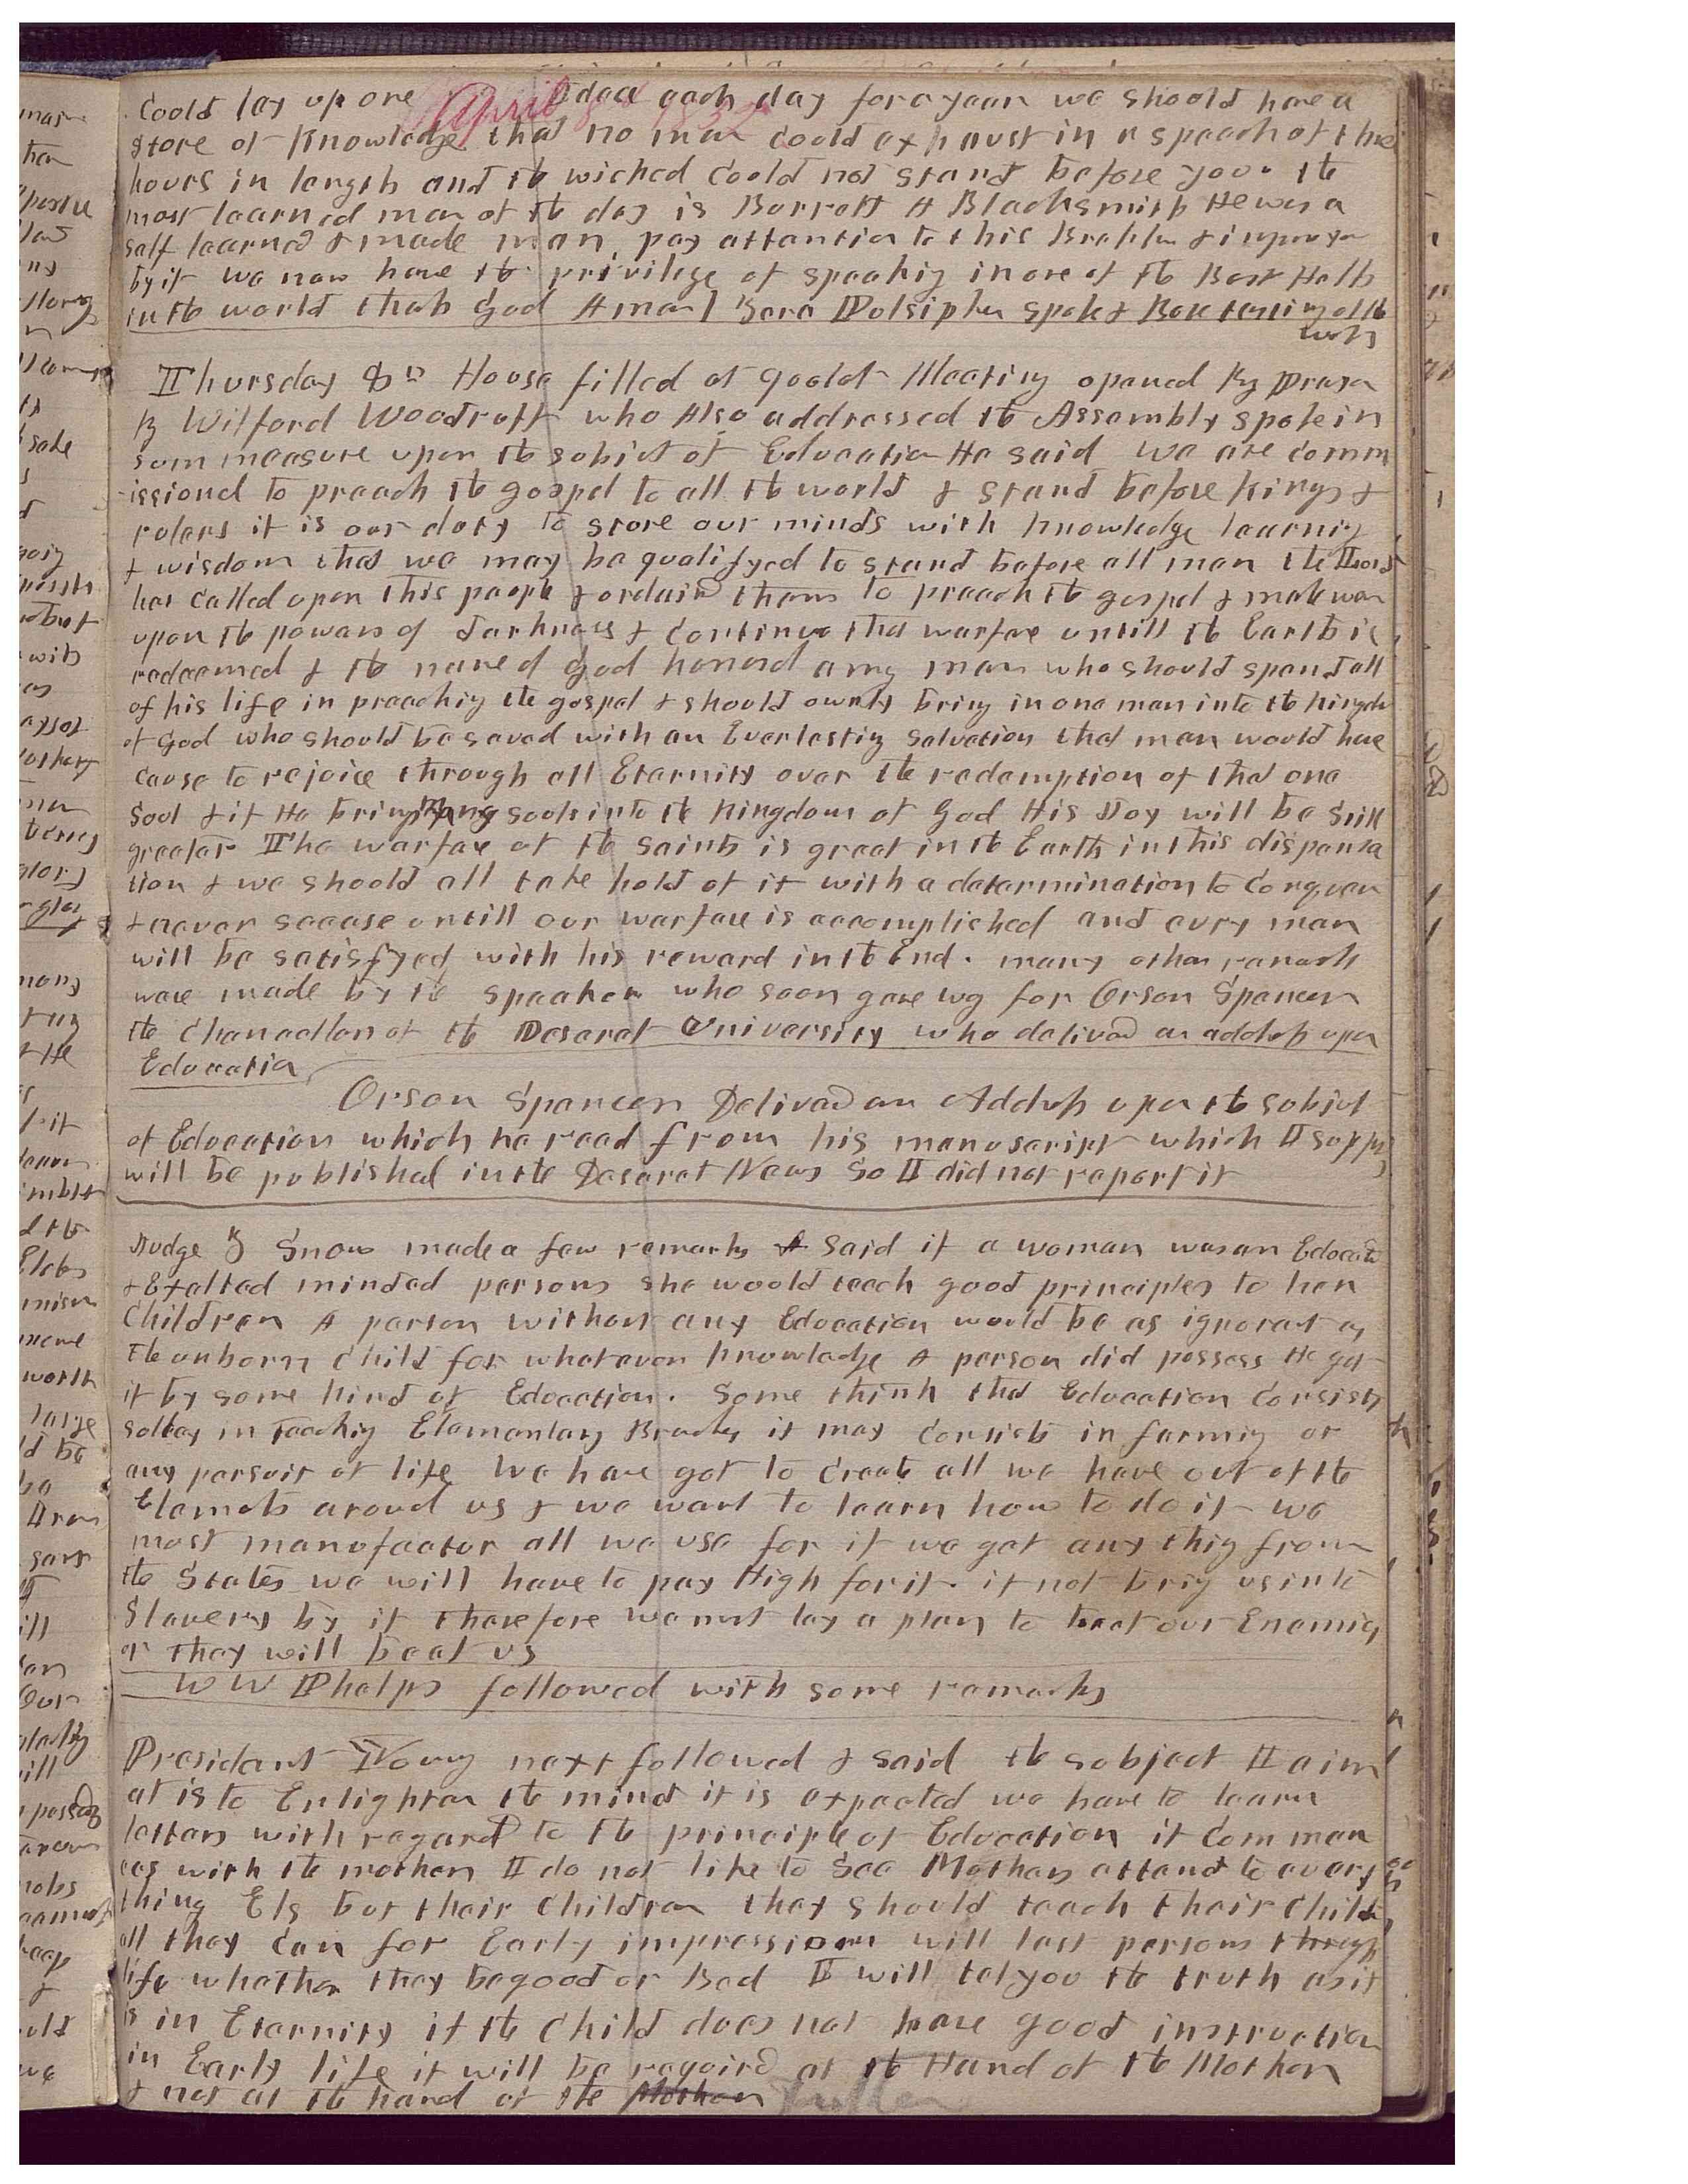 April 8th 1852
Could lay up one Idea each day for a year we should have a
store of knowledge that no man could exhaust in a speech of three
hours in length and the wicked Could not stand before you. the
most learned man of the day is Burrett A Blacksmith He was a
self learned & made man, pay attention to this Brethren & improve
by it we now have the privilege of speaking in one of the Best Halls
in the world thank God Amen] Zera Pulsipher spoke & Bore testimony of the
work
Thursday 8th House filled at 9 oclok Meeting opened By Prayer
By Wilford Woodruff who Also addressed the Assembly spoke in
sum measure upon the subject of Education He said we are comm
-issiond to preach the gospel to all the world & stand before Kings &
rulers it is our duty to store our minds with knowledge learning
& wisdom that we may be qualifyed to stand before all men the Lord
has called upon this people & ordaind them to preach the gospel & make war
upon the powers of darkness & Continue that warfare untill the Earth is
redeemed & the name of God honord any man who should spend all
of his life in preaching the gospel & should ownly bring in one man into the kingdom
of God who should be saved with an Everlasting Salvation that man would have
cause to rejoice through all Eternity over the redemption of that one
Soul & if He bring many souls into the Kingdom of God His Joy will be still
greater The warfare of the saints is great in the Earth in this dispensa
tion & we should all take hold of it with a determination to Conquer
& never seease untill our warfare is accomplished and evry man
will be satisfyed with his reward in the End. many other remarks
ware made by the speaker who soon gave way for Orson Spencer
the Chancellor of the Deseret University who deliverd an address upon
Education
Orson Spencer Deliverd an Address upon the subject
of Education which he read from his manuscript which I suppose
will be published in the Deseret News So I did not report it
Judge Z Snow made a few remarks & said if a woman was an Educated
& Exalted minded persons she would teach good principles to her
Children A person without any Education would be as ignorant as
the unborn child for whatever knowledge A person did possess He got
it by some kind of Education. Some think that Education Consists
solley in teaching Elementary Branches it may Consists in farming or
any persuit of life We have got to Create all we have out of the
Elemets aroud us & we want to learn how to do it we
must manufactor all we use for if we get any thig from
the States we will have to pay High for it. if not brig us into
Slavery by it Therefore we must lay a plan to beat our Enemies
or they will beat us
W W Phelps followed with some remarks
President Young next followed & said the subject I aim
at is to Enlighten the mind it is expected we have to learn
letters with regard to the principle of Education it Commen
ces with the mother I do not like to See Mothers attend to every
thing Els but their Children they should teach their Children
all they can for Early impressions will last persons through
life whether they be good or Bad I will tel you the truth as it
is in Eternity if the Child does not have good instruction
in Early life it will be requird at the Hand of the Mother
& not at the hand of the Mother Father